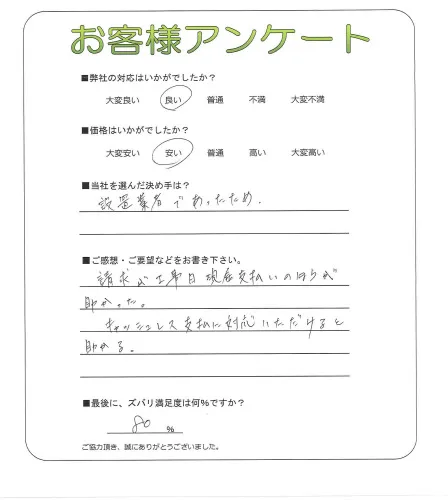 お客様アンケート
■弊社の対応はいかがでしたか?
大変良い 良い 普通 不満 大変不満
■価格はいかがでしたか?
大変安い 安い 普通 高い 大変高い
■当社を選んだ決め手は?
設置業者であったため.
■ご感想・ご要望などをお書き下さい。
請求が工事日現金支払いのほうが
助かった。
キャッシュレス支払に対応いただけると
助かる。
■最後に、ズバリ満足度は何%ですか?
80 %
ご協力頂き、誠にありがとうございました。